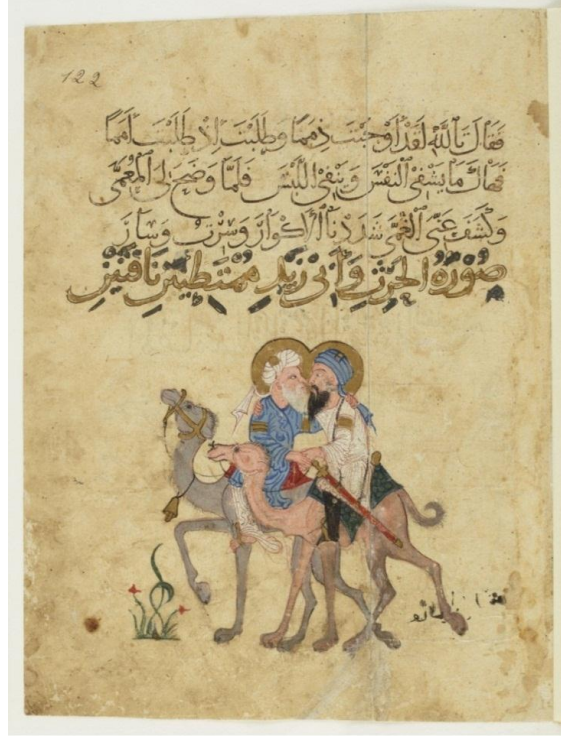 122
فَقَالَ تَاللّٰهِ لَقَدْ اَوْجَبْتَ ذِمَمًا وَطَلَبْتَ اِذْ طَلَبْتَ اَمَمًا
فَهَاكَ مَا يَشْفِي النَّفْسَ وَيَنْفِي اللَّبْسَ فَلَمَّا وَضَحَ لِيَ الْمُعَمَّى
وَكَشَفَ عَنِّي الْغُمَّى شَدَدْنَا الْاَكْوَارَ وَسِرْتُ وَسَارَ
صُوْرَةُ الْحَرِثِ وَاَبِي زَيْدٍ مُمْتَطِيَيْنِ نَاقَتَيْنِ